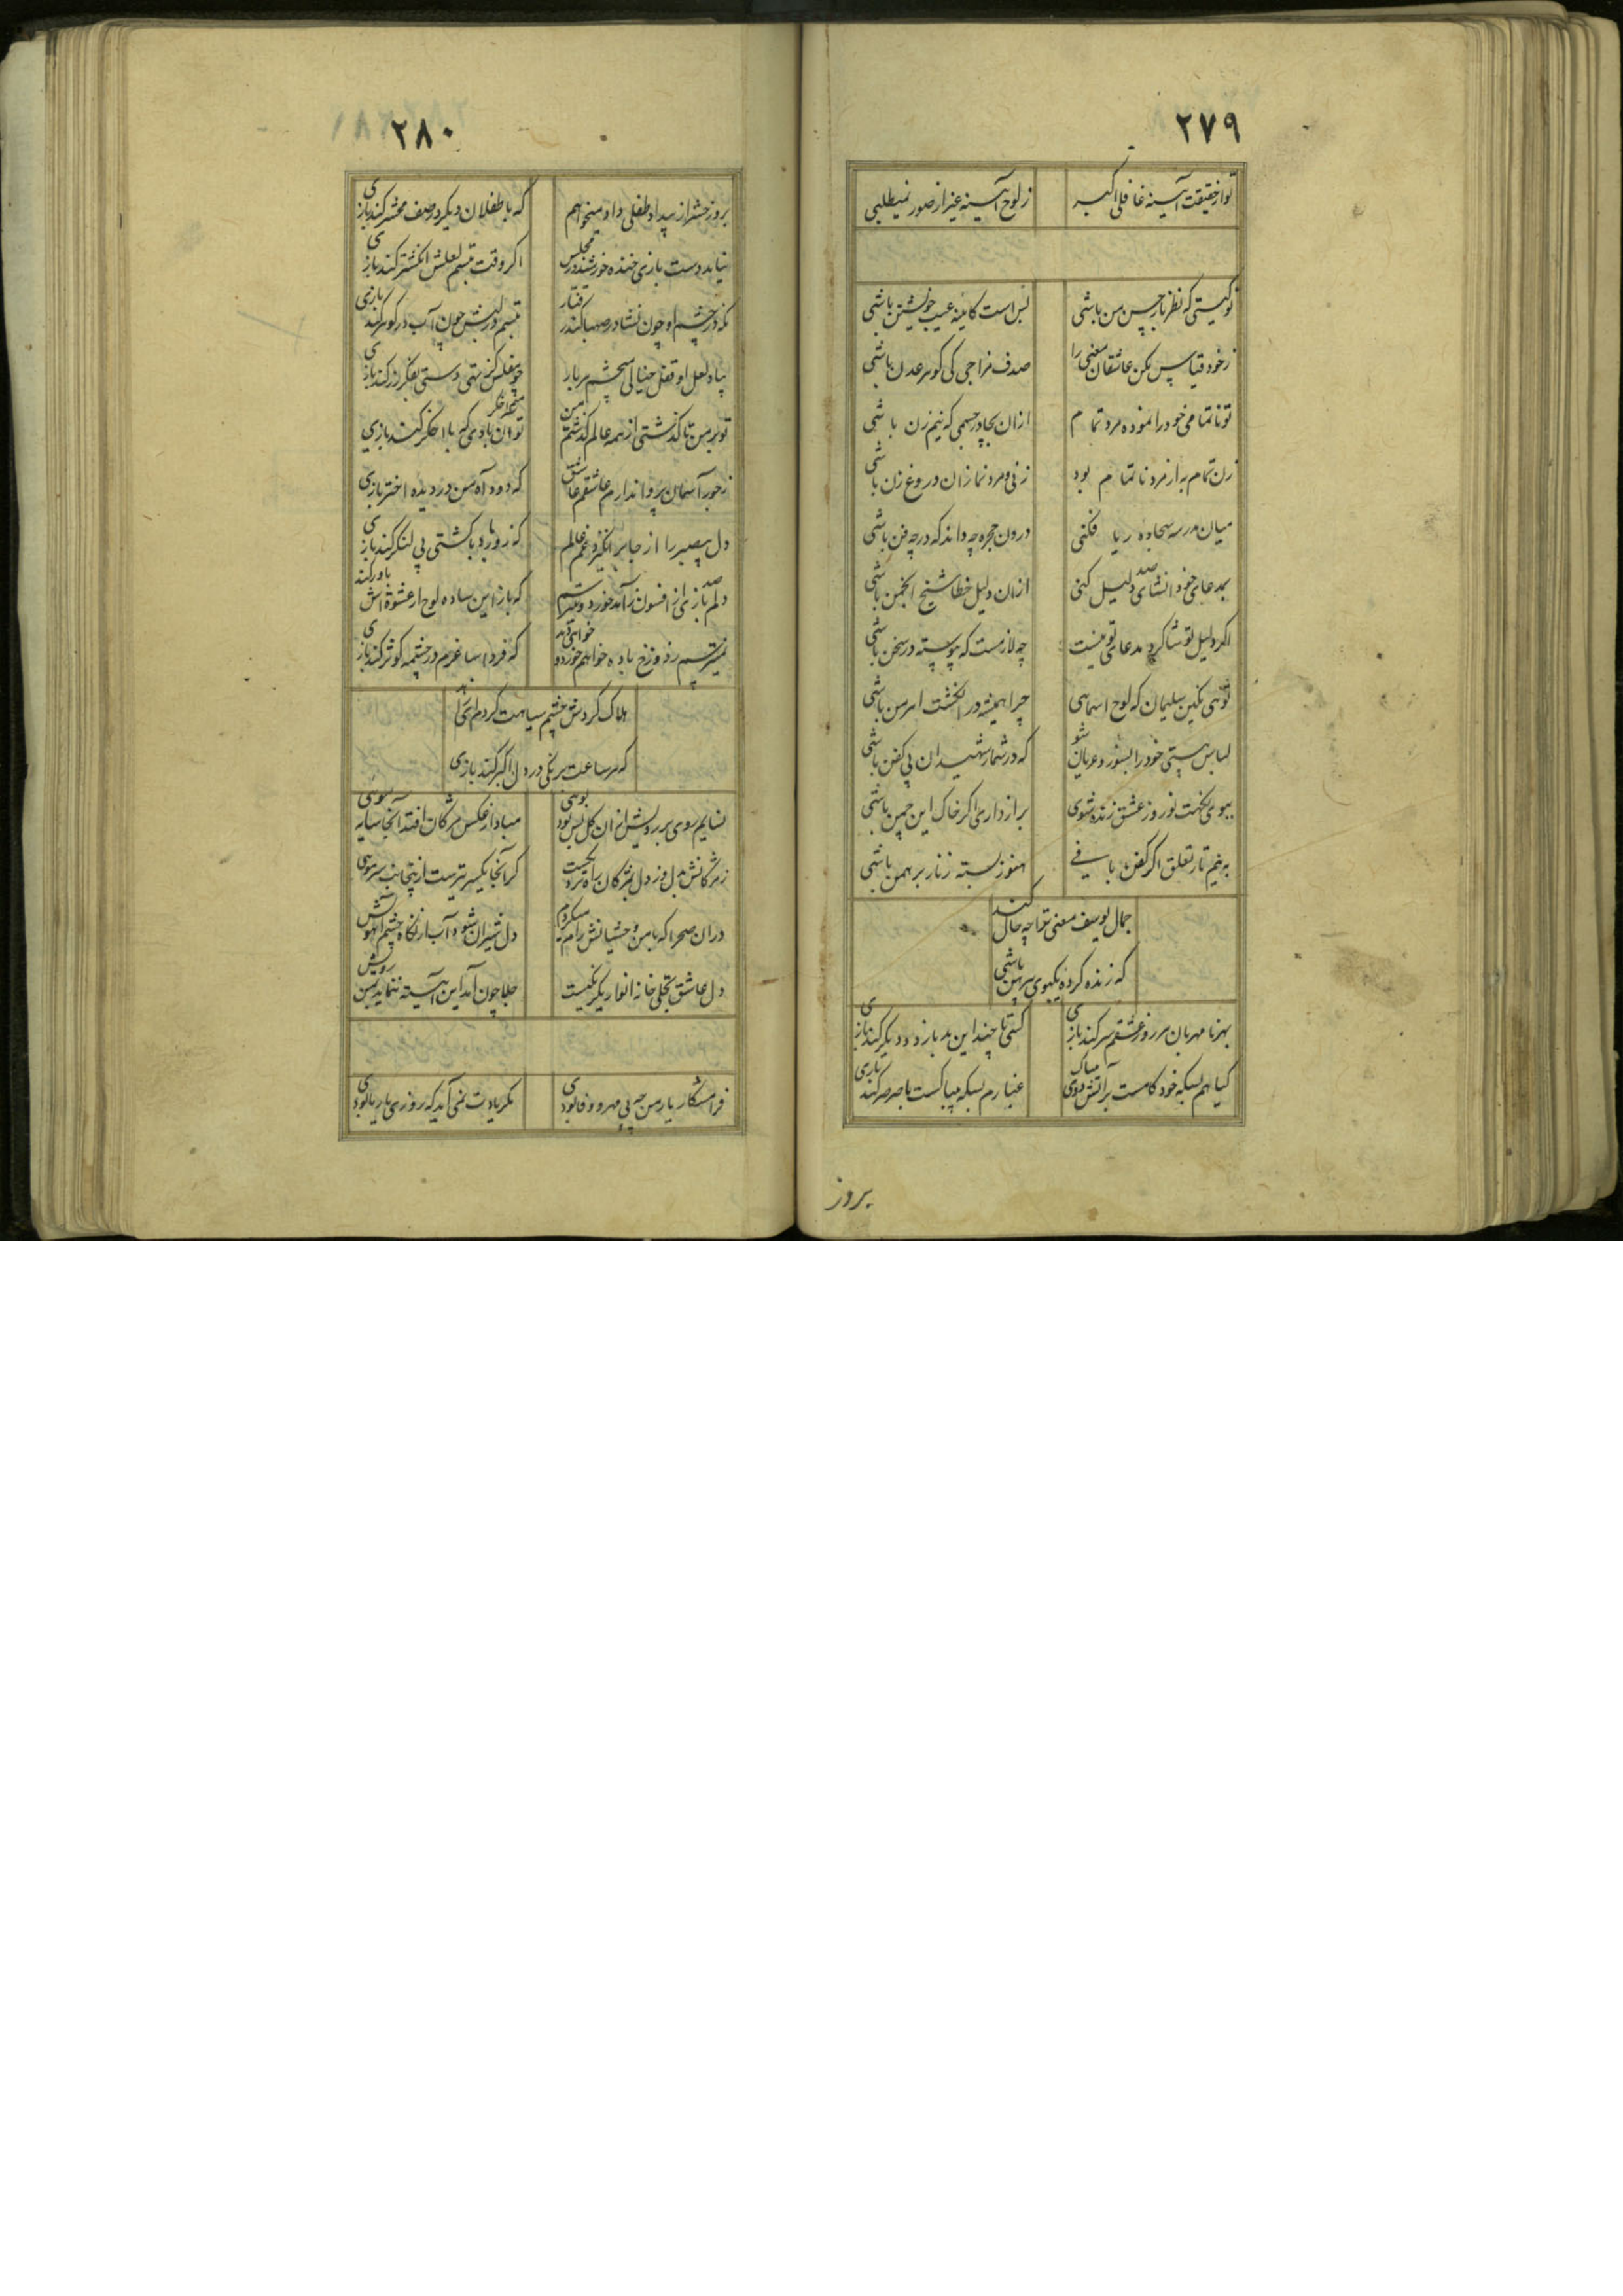 ۲۷۹
تو از حقیقت آیینه غافلی اکبر
ز لوح آیینه غیر از صور نمیطلبی
تو کیستی که نظرباز حسن من باشی
بس است کاینه عیب خویشتن باشی
ز خود قیاس مکن عاشقان معنی را
صدف مزاجی کی گوهر عدن باشی
تو ناتمامی خود را نموده مرد تمام
ازان بچادر جسمی که نیم زن باشی
زن تمام به از مرد ناتمام بود
زنی و مرد نما زان دروغ زن باشی
میان مدرسه سجاده ریا فکنی
درون حجره چه داند که در چه فن باشی
بمدعای خود انشای صد دلیل کنی
ازان دلیل خطا شیخ انجمن باشی
اگر دلیل تو شاگرد مدعای تو نیست
چه لازمست که پیوسته در سخن باشی
توئی نگین سلیمان که لوح اسمایی
چرا همیشه در انگشت اهرمن باشی
لباس هستی خود را بسوز و عریان شو
که در شمار شهیدان بی کفن باشی
ببوی نکهت نوروز عشق زنده شوی
براز داری اگر خاک این چمن باشی
به نیم تار تعلق اگر کفن بافی
هنوز بسته زنار برهمن باشی
جمال یوسف معنی ترا چه حال کند
که زنده کرده یکبوی پیرهن باشی
بهر نامهربان هر روز عشقم سر کند بازی
کسی تا چند این بد باز دو دیگر کند بازی
گیاهم بسکه خودکامست بر آتش دوی
غبارم بسکه بیباکست با صرصر کند بازی
بروز
۲۸۰
بروز حشر از بیداد طفلی داد میخواهم
که با طفلان دیگر در صف محشر کند بازی
نیاید دست بازی خنده خورشید در مجلس
اگر وقت تبسم لعلش انگشتر کند بازی
نگه در چشم او چون نشاء در صهبا کند رفتار
تبسم در لبش چون آب در گوهر کند بازی
بیاد لعل او قفل خیالی
چو مفلس کز تهی دستی بفکر زر کند بازی
تو بر من تا گذشتی از همه عالم گذشتم من
تو آن بادی که با اخگر کند بازی
ز جور آسمان پروا ندارم عاشقم عاشق
که دود آه من در دیده اختر بازی
دل بیصبر را از جا برانگیزد غم عالم
که زور باد با کشتی بی لنگر کند بازی
دلم بازی از افسون صد خورد و میترسم
که باز این ساده لوح از عشوه اش باور کند
نمیترسم ز دوزخ باده خواهم خورد و خواهی دید
که فردا ساغرم در چشمه کوثر کند بازی
هلاک گردش چشم سیاهت گردم ای
که هر ساعت برنگی در دل اکبر کند بازی
نسایم روی بر رویش ازان گل بس بود بوئی
مبادا از عکس مژگان افتد آنجا سایه موئی
ز مژگانش بدل وز دل بمژگان راه نزدیکست
گر آنجا یکسر تیرست ازینجانب سر موئی
دران صحرا که با من وحشیانش رام میگردم
دل شیران شود آب از نگاه چشم آهویش
دل عاشق تجلی خانه انوار یکرنگیست
جلا چون آید این آیینه ننماید بمن رویش
فرامشکار یار من چه بی مهر و وفا بودی
مگر یادت نمی آید که روزی یار ما بودی